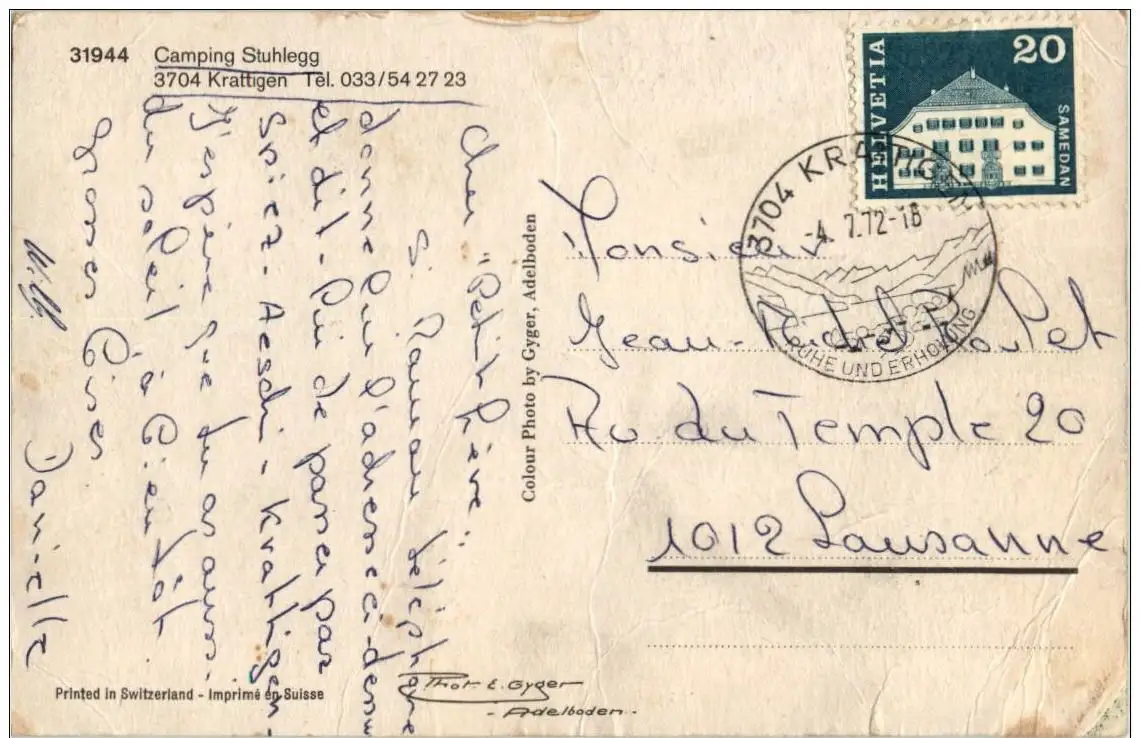 31944 Camping Stuhlegg
3704 Krattigen Tel. 033/54 27 23
HELVETIA
20
SAMEDAN
3704 KRATTIGEN
-4. 7.72-18
RUHE UND ERHOLUNG
Monsieur
Jean-Michel Poulet
Av. du Temple 20
1012 Lausanne
Cher "Petit frère"
Si Maman téléphone
donne lui l'adresse ci-dessus
et dit-lui de passer par
Spiez-Aeschi-Krattigen-
J'espère que tu as aussi
du soleil à bientôt
Grosses bises
Danielle
Willy
Colour Photo by Gyger, Adelboden
Printed in Switzerland - Imprimé en Suisse
Phot. E. Gyger
- Adelboden -